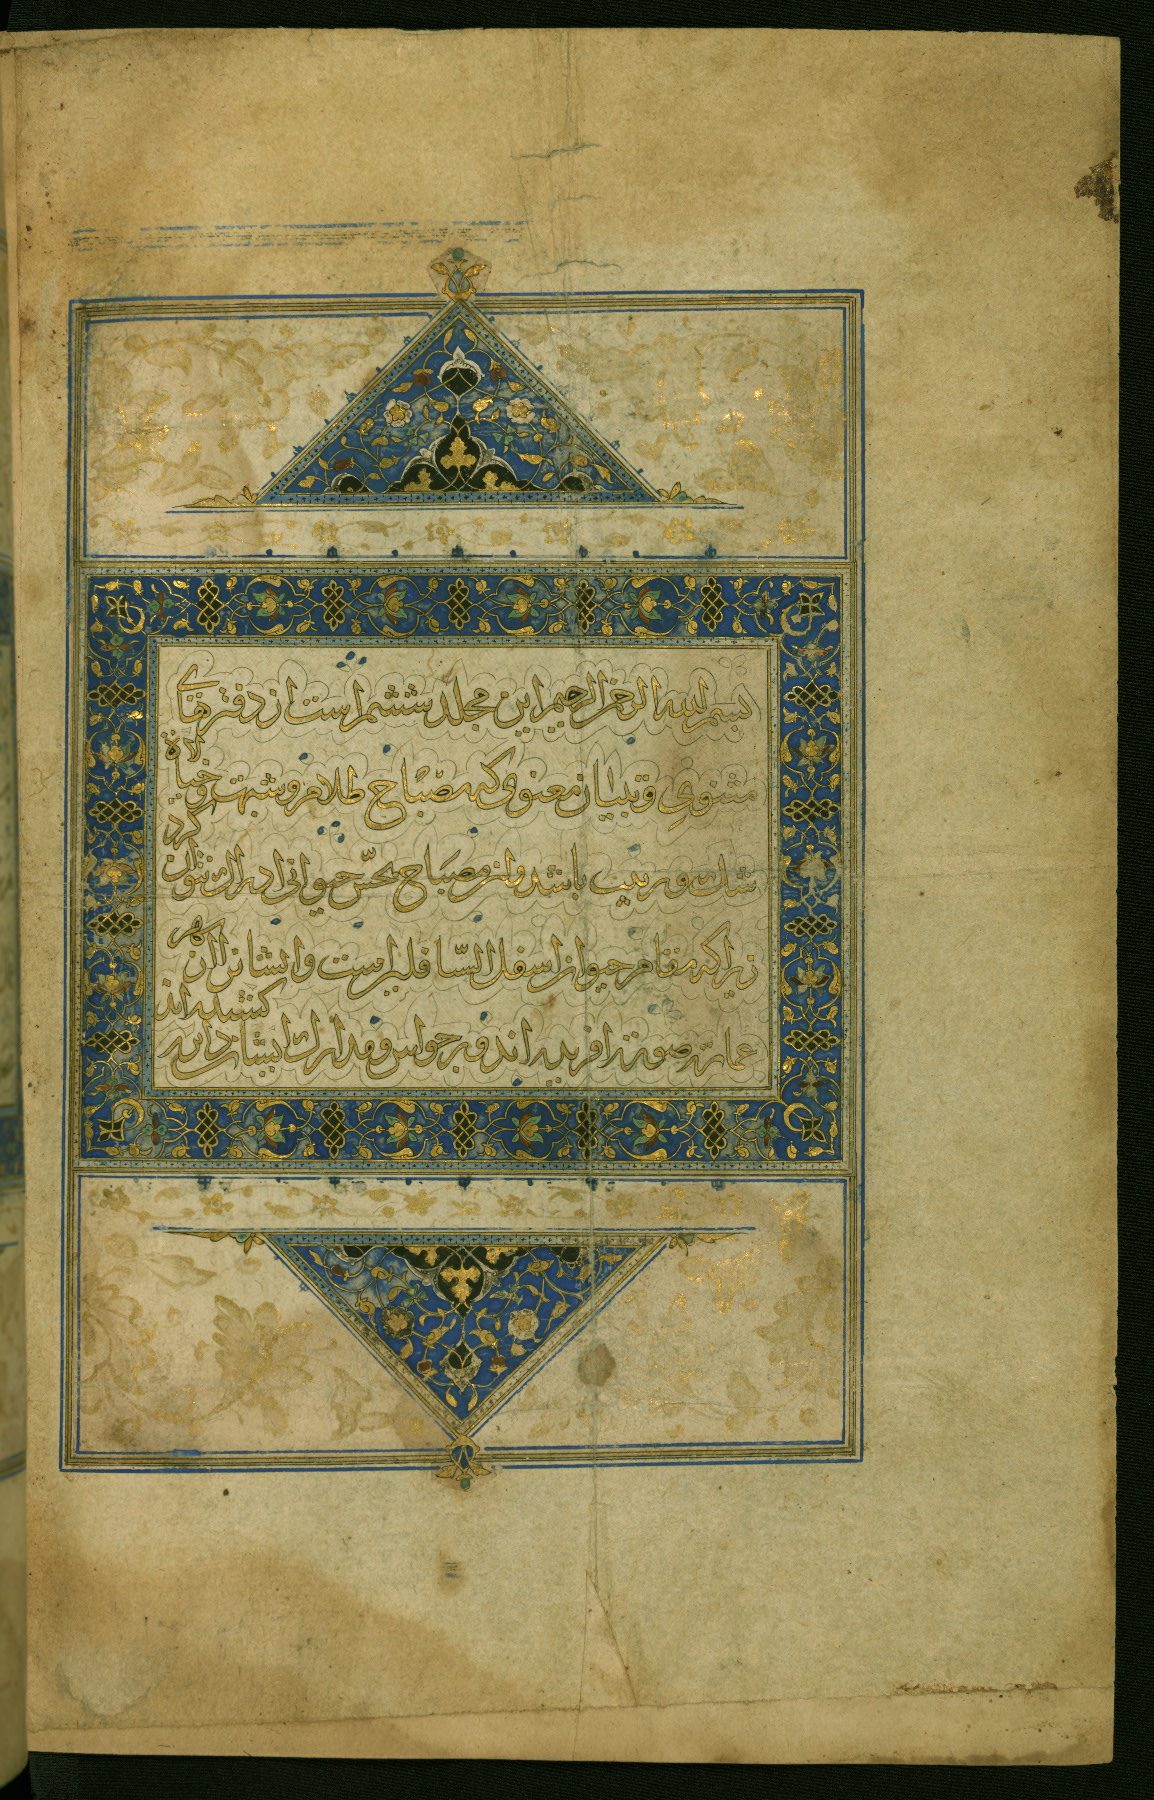 بسم الله الرحمن الرحیم این مجلد ششم است از دفترهای
مثنوی و تبیان معنوی که مصباح ظلام و شبهت و خیالات
شک و ریب باشد و این مصباح بحس حیوانی ادراک نتوان کرد
زیرا که مقام حیوان اسفل السافلین است و ایشانرا از بهر
عمارت صورت آفریده‌اند و بر حواس و مدارک ایشان دایره کشیده‌اند